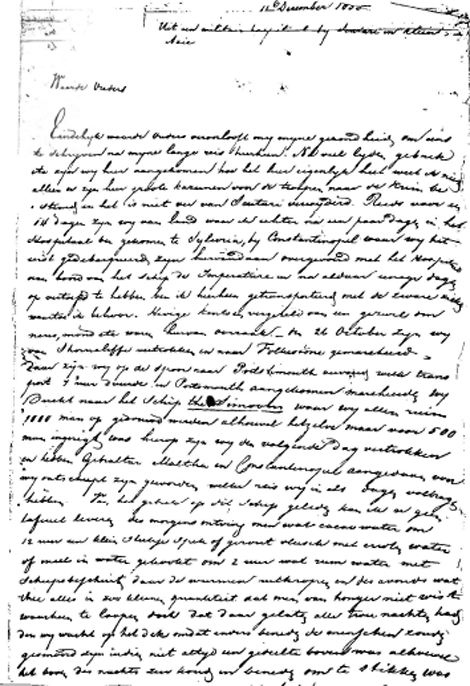 12 December 1855
Uit een militair hospitaal by in Klein
Azie
Waarde Ouders
Eindelyk waarde ouders veroorlooft my myne gezondheid om eens
te schryven na myne lange reis hierheen. Na veel lyden, gebrek
zyn wy hier aangekomen hoe het hier eigenlyk heet weet ik niet
alles er zyn hier groote kazernen voor de troepen naar de Krim be
stemd en het is niet ver van Scutari verwyderd. Reeds voor een
14 dagen zyn wy aan land waar ik echter na een paar dagen in het
Hospitaal ben gekomen te by Constantinopel waar wy het
eerst gedebarqueerd, zyn hiernaar overgevoerd met het Hospitaal
aan boord van het schip de Imperatrice en na aldaar eenige dagen
op vertoefd te hebben ben ik hierheen getransporteerd met de zware zieken
waartoe ik behoor. Hevige koortsen vergezeld van een gezwel
neus, mond etc waren hiervan oorzaak. den 26 October zyn wy
van Shorncliffe vertrokken en naar Folkestone gemarcheerd
daar zyn wy op de spoor naar Portsmouth welk trans
port 7 uur duurde in Portsmouth aangekomen marcheerde wy
direkt naar het schip the Simoom waar wy allen ruim
1000 man op gestouwd werden alhoewel hetzelve maar voor 500
man ingerigt was hierop zyn wy den volgende dag vertrokken
en hebben Gibralter Maltha en Constantinopel aangedaan, voor
wy ontscheept zyn geworden welke reis wy in als dagen volbragt
hebben. het gebrek op dit schip geleden kan ik u geen
tafereel leveren des morgens ontving men wat cacao water om
12 uur een klein stukje spek of gezout vleesch met erwten water
of meel in water gekookt om 2 uur wat rum water met
Scheepsbeschuit, daar de wurmen uitkropen en des avonds wat
thee alles in zoo kleine quantiteit dat men van honger niet wist
waarheen te loopen doch dat daar gelaten alle twee nachten had
den wy wacht op het dek omdat anders beneden de menschen zoude
gesmoord zyn indien niet altyd een gedeelte boven was alhoewel
het boven des nachts zeer koud en beneden om te stikken was